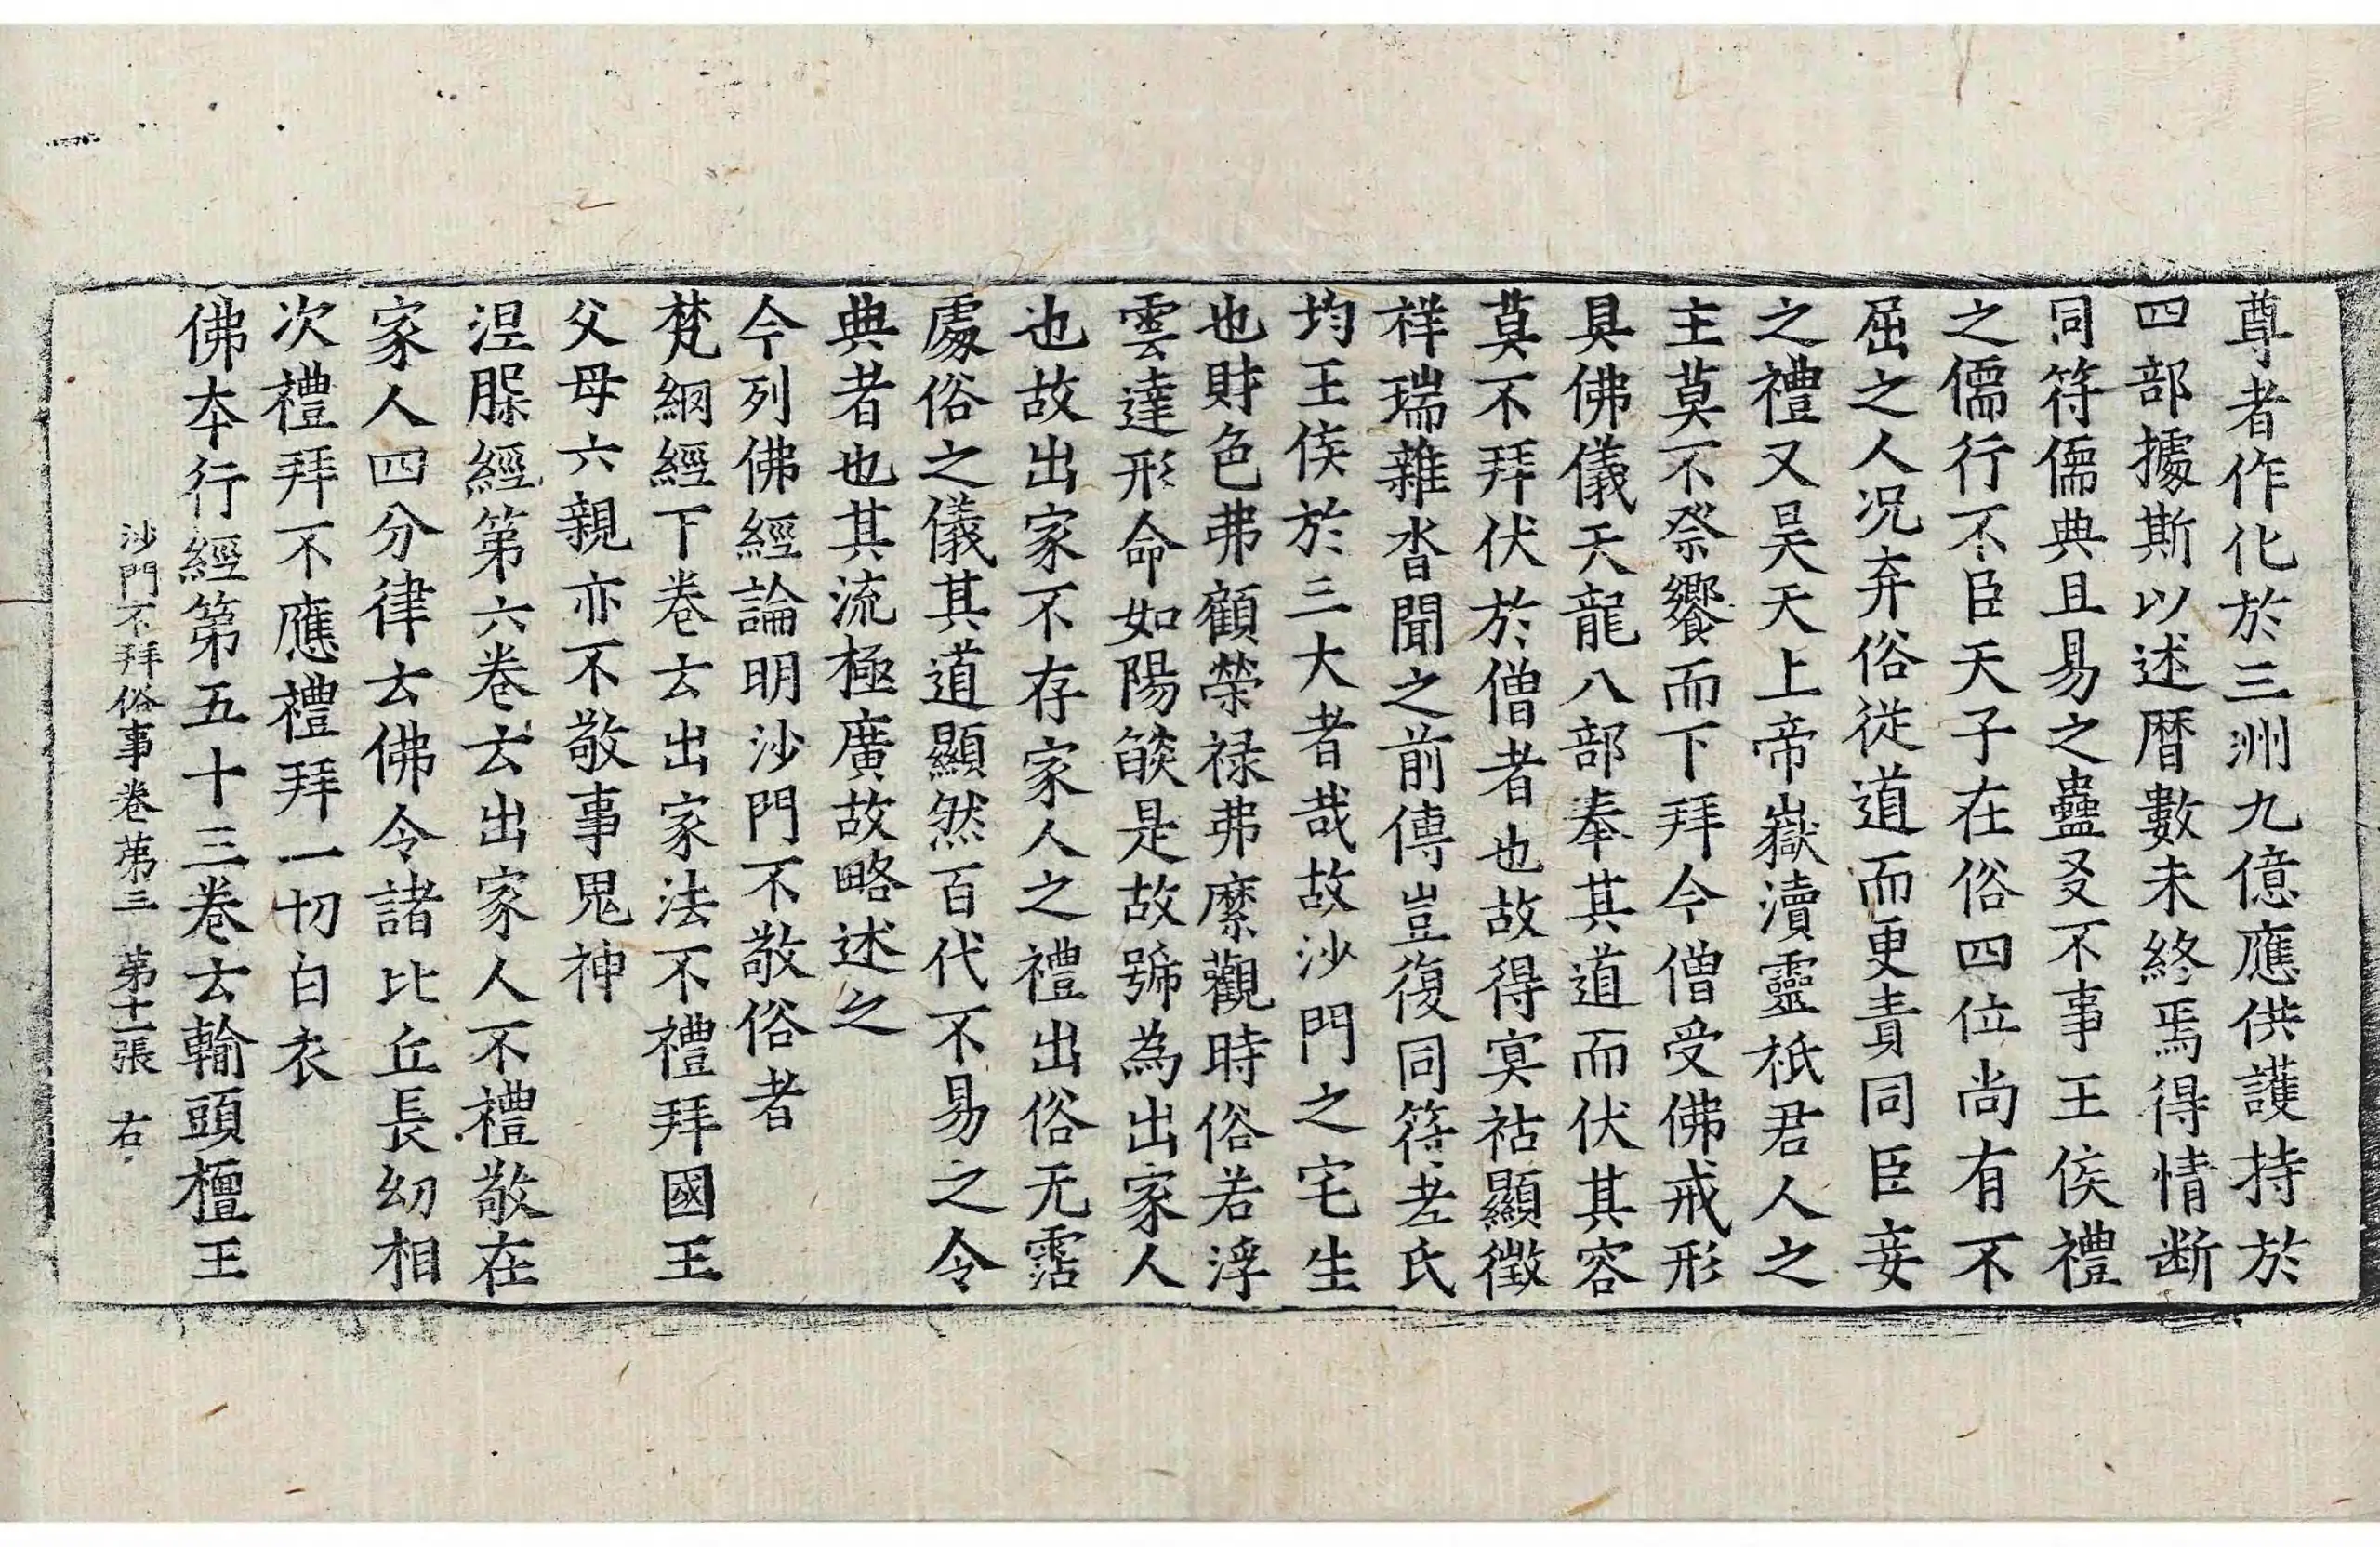 尊者作化於三洲九億應供護持於
四部據斯以述曆數未終焉得情断
同符儒典且易之蠱爻不事王侯禮
之儒行不臣天子在俗四位尚有不
屈之人况弃俗從道而更責同臣妾
之禮又昊天上帝嶽瀆靈祇君人之
主莫不祭饗而下拜今僧受佛戒形
具佛儀天龍八部奉其道而伏其容
莫不拜伏於僧者也故得冥祜顯徵
祥瑞雜沓聞之前傳豈復同符老氏
均王侯於三大者哉故沙門之宅生
也財色弗顧榮禄弗縻觀時俗若浮
雲達形命如陽燄是故號為出家人
也故出家不存家人之禮出俗无霑
處俗之儀其道顯然百代不易之令
典者也其流極廣故略述之
今列佛經論明沙門不敬俗者
梵網經下卷云出家法不禮拜國王
父母六親亦不敬事鬼神
涅脲經第六卷云出家人不禮敬在
家人四分律云佛令諸比丘長幼相
次禮拜不應禮拜一切白衣
佛本行經第五十三卷云輸頭檀王
沙門不拜俗事卷第三 第十一張 右